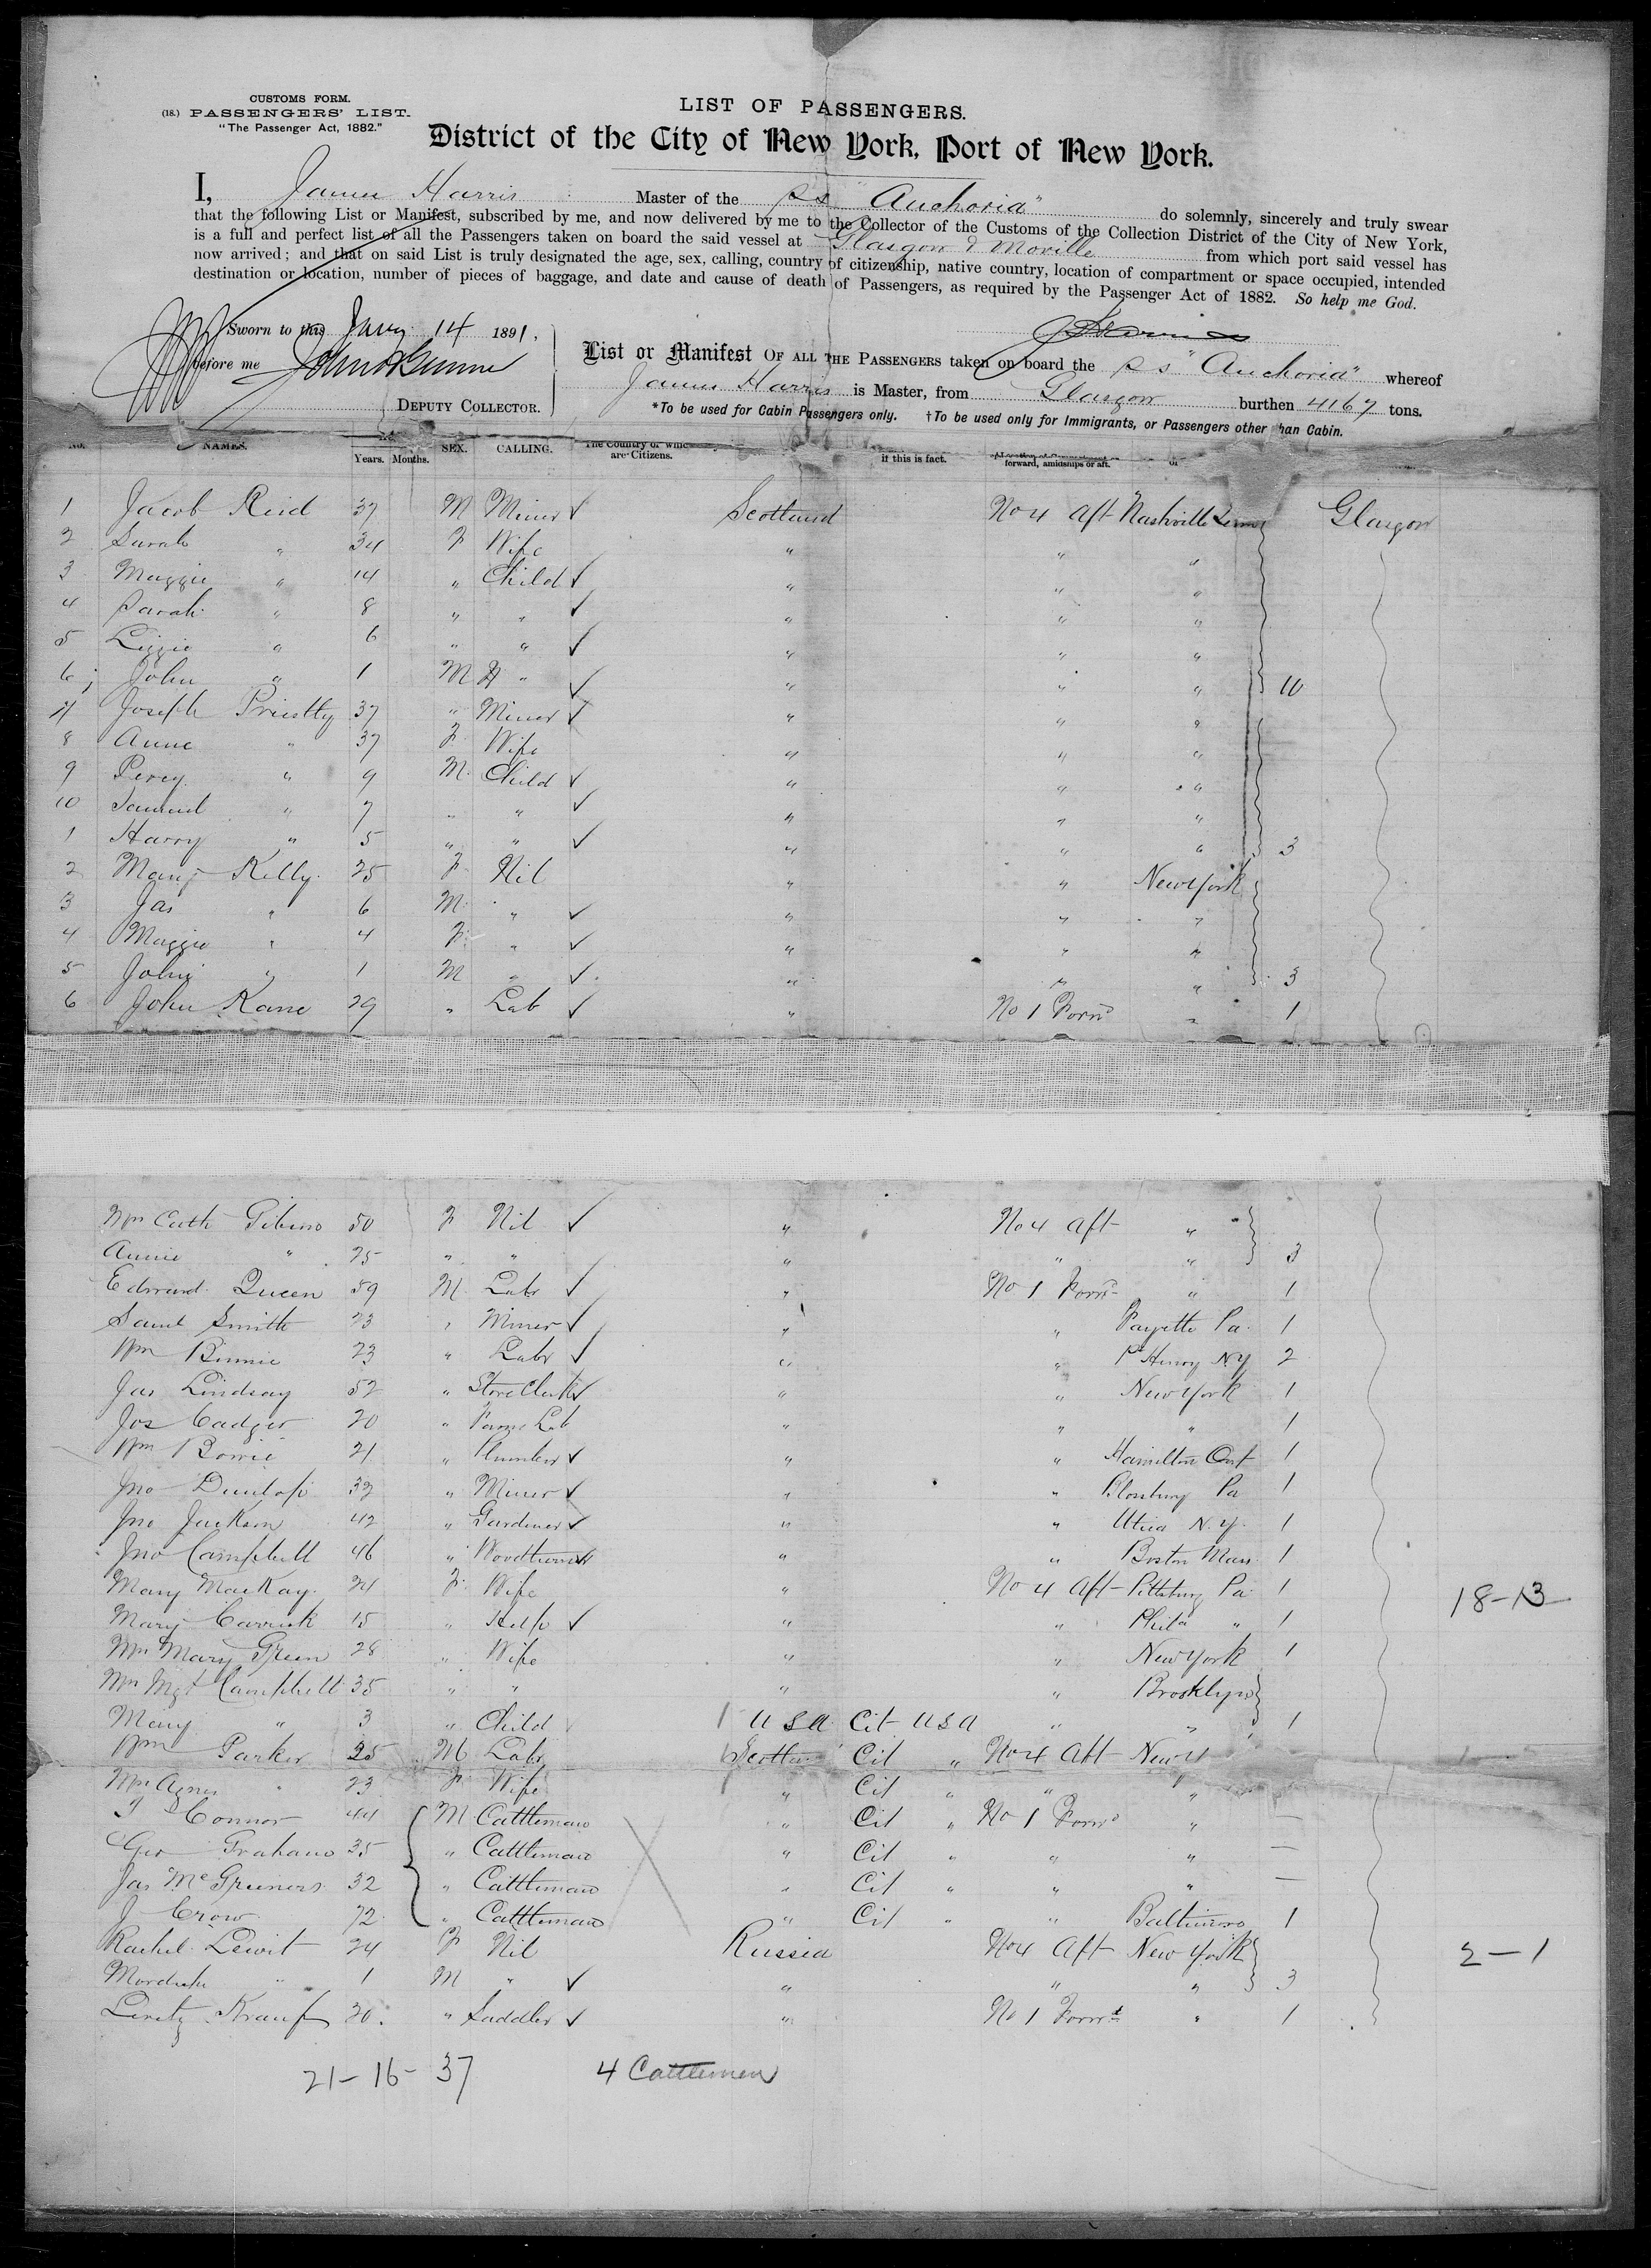 CUSTOMS FORM.
(18.) PASSENGERS' LIST.
"The Passenger Act, 1882."
LIST OF PASSENGERS.
District of the City of New York, Port of New York.
I, James Harris Master of the SS "Anchoria" do solemnly, sincerely and truly swear
that the following List or Manifest, subscribed by me, and now delivered by me to the Collector of the Customs of the Collection District of the City of New York,
is a full and perfect list of all the Passengers taken on board the said vessel at Glasgow & Moville from which port said vessel has
now arrived; and that on said List is truly designated the age, sex, calling, country of citizenship, native country, location of compartment or space occupied, intended
destination or location, number of pieces of baggage, and date and cause of death of Passengers, as required by the Passenger Act of 1882. So help me God.
Sworn to this Jany 14 1891,
before me
DEPUTY COLLECTOR.
List or Manifest OF ALL THE PASSENGERS taken on board the SS "Anchoria" whereof
James Harris is Master, from Glasgow burthen 4167 tons.
*To be used for Cabin Passengers only. †To be used only for Immigrants, or Passengers other than Cabin.
No. NAMES. Years. Months. SEX. CALLING. The Country of which are Citizens. if this is fact. forward, amidships or aft.
1 Jacob Reid 37 M Miner ✓ Scotland No 4 Aft Nashville Tenn Glasgow
2 Sarah " 34 F Wife " " "
3 Maggie " 14 " Child ✓ " " "
4 Sarah " 8 " " ✓ " " "
5 Lizzie " 6 " " ✓ " " "
6 John " 1 M " ✓ " " " 10
7 Joseph Priestly 37 " Miner ✓ " " "
8 Anne " 37 F Wife " " "
9 Percy " 9 M Child ✓ " " "
10 Samuel " 7 " " ✓ " " "
1 Harry " 5 " " ✓ " " " 3
2 Mary Kelly 25 F Nil " " New York
3 Jas " 6 M " ✓ " " "
4 Maggie " 4 F " ✓ " " "
5 John " 1 M " ✓ " " " 3
6 John Kane 29 " Lab ✓ " No 1 Forwd " 1
Mrs Cath 50 F Nil ✓ " No 4 Aft "
Annie " 25 " " " " " 3
Edward Queen 59 M Labr ✓ " No 1 Forwd " 1
Saml Smith 23 " Miner ✓ " " Fayette Pa 1
Wm Binnie 23 " Labr ✓ " " Pt Henry NY 2
Jas Lindsay 52 " Store Clerk ✓ " " New York 1
Jos Cadger 20 " Farm Lab " " " 1
Wm Bowie 21 " Plumber ✓ " " Hamilton Ont 1
Jno Dunlop 32 " Miner ✓ " " Blossburg Pa 1
Jno Jackson 42 " Gardiner ✓ " " Utica N.Y. 1
Jno Campbell 46 " Woodturner ✓ " " Boston Mass 1
Mary MacKay 24 F Wife " No 4 Aft Pittsburg Pa 1 18-13
Mary Carrick 15 " Help ✓ " " Phila " 1
Mrs Mary Green 28 " Wife " " New York 1
Mrs Mgt Campbell 35 " " " " Brooklyn
Mary " 3 " Child 1 USA Cit USA " " 1
Wm Parker 25 M Labr Cit " No 4 Aft New Y
Mrs Agnes " 23 F Wife " Cit " " "
Connor 44 M Cattleman " Cit " No 1 Forwd " —
Geo Graham 35 " Cattleman " Cit " " " —
Jas 32 " Cattleman " Cit " " " —
J Crow 72 " Cattleman " Cit " " Baltimore 1
Rachel Lewit 24 F Nil Russia No 4 Aft New York 2-1
1 M " ✓ " " " 3
20 " Saddler ✓ " No 1 Forwd " 1
21-16-37 4 Cattlemen